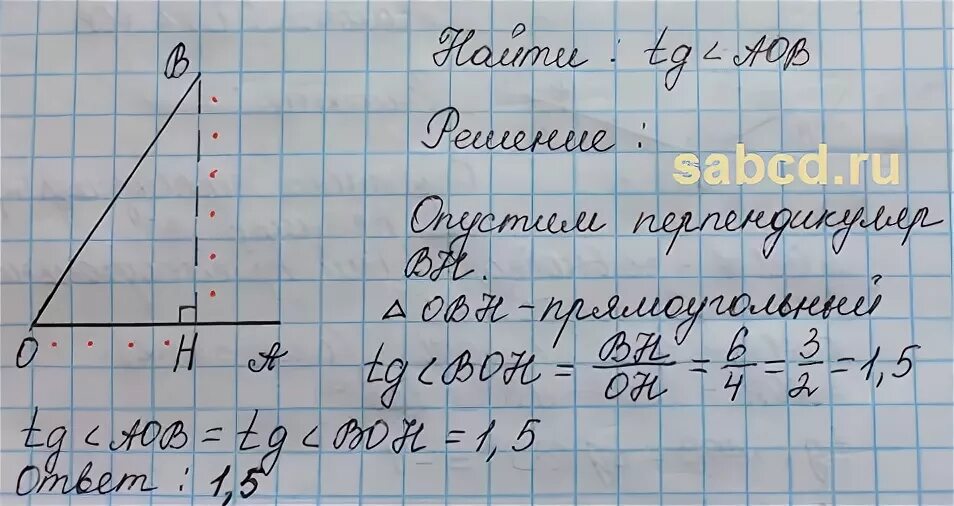 Найти : tg < AOB
Решение :
sabcd.ru
Опустим перпендикуляр
BH.
△ OBH - прямоугольный
tg < BOH = BH/OH = 6/4 = 3/2 = 1,5
B
O H A
tg < AOB = tg < BOH = 1,5
Ответ : 1,5